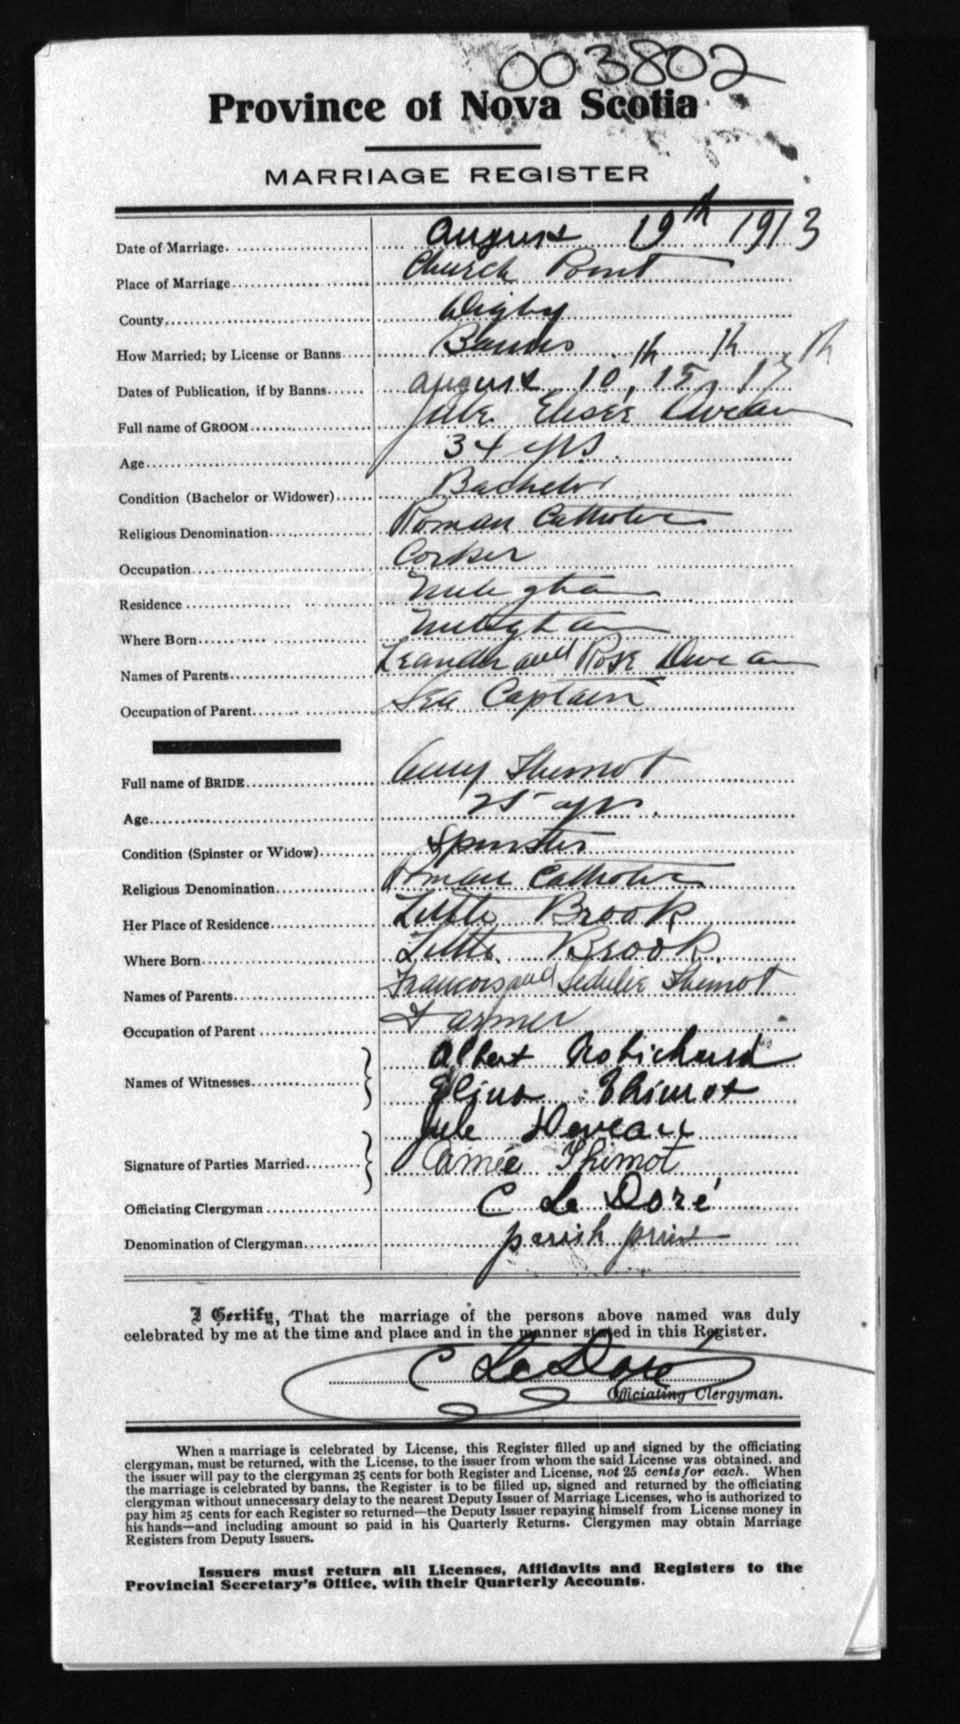 003802
Province of Nova Scotia
MARRIAGE REGISTER
Date of Marriage. August 19th 1913
Place of Marriage Church Point
County Digby
How Married; by License or Banns Banns
Dates of Publication, if by Banns August 10th, 15th, 17th
Full name of GROOM Jule Elisée Deveau
Age 34 yrs.
Condition (Bachelor or Widower) Bachelor
Religious Denomination Roman Catholic
Occupation
Residence Meteghan
Where Born Meteghan
Names of Parents Leander and Rose Deveau
Occupation of Parent Sea Captain
Full name of BRIDE Thimot
Age 25 yrs.
Condition (Spinster or Widow) Spinster
Religious Denomination Roman Catholic
Her Place of Residence Little Brook
Where Born Little Brook.
Names of Parents Francois and Sedulie Thimot
Occupation of Parent Farmer
Albert Robichaud
Names of Witnesses Thimot
Jule Deveau
Signature of Parties Married Aimée Thimot
Officiating Clergyman C Le Doré
Denomination of Clergyman parish priest
I Certify, That the marriage of the persons above named was duly
celebrated by me at the time and place and in the manner stated in this Register.
C Le Doré
Officiating Clergyman.
When a marriage is celebrated by License, this Register filled up and signed by the officiating
clergyman, must be returned, with the License, to the issuer from whom the said License was obtained, and
the issuer will pay to the clergyman 25 cents for both Register and License, not 25 cents for each. When
the marriage is celebrated by banns, the Register is to be filled up, signed and returned by the officiating
clergyman without unnecessary delay to the nearest Deputy Issuer of Marriage Licenses, who is authorized to
pay him 25 cents for each Register so returned—the Deputy Issuer repaying himself from License money in
his hands—and including amount so paid in his Quarterly Returns. Clergymen may obtain Marriage
Registers from Deputy Issuers.
Issuers must return all Licenses, Affidavits and Registers to the
Provincial Secretary's Office, with their Quarterly Accounts.